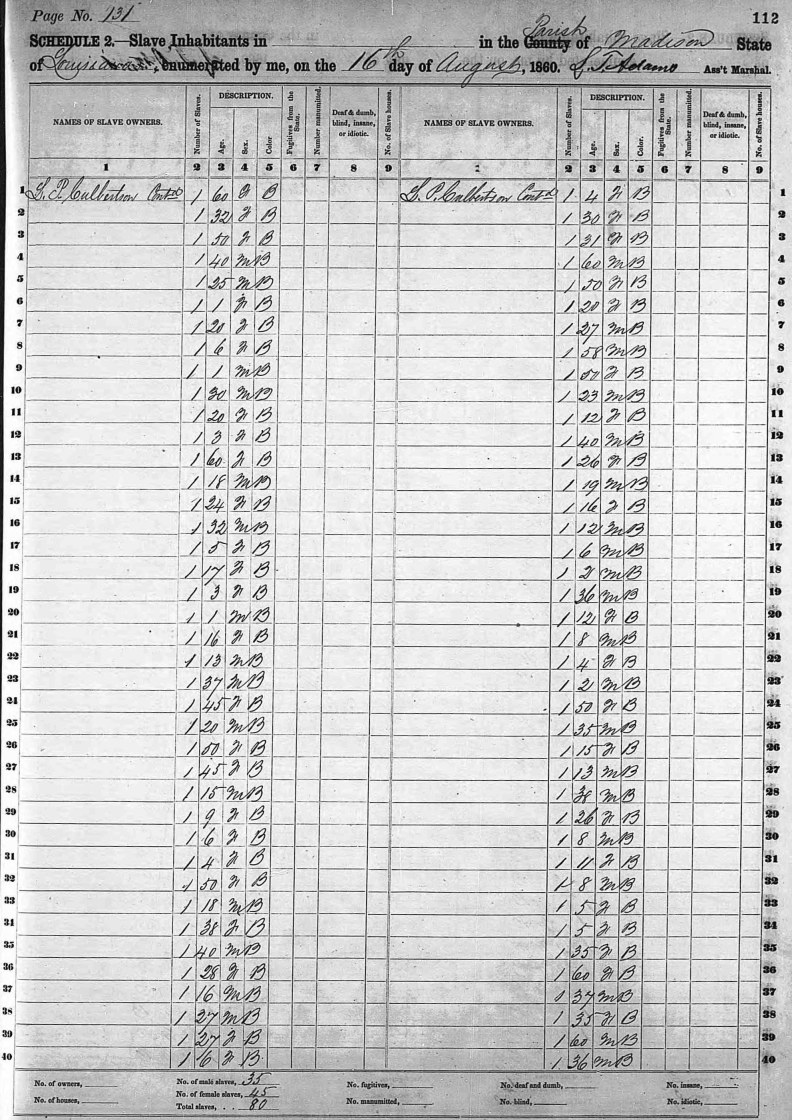 Page No. 131
112
SCHEDULE 2.—Slave Inhabitants in in the County Parish of Madison State
of Louisiana, enumerated by me, on the 16th day of August, 1860. S. T. Adams Ass't Marshal.
NAMES OF SLAVE OWNERS. Number of Slaves. DESCRIPTION. Age. Sex. Color Fugitives from the State. Number manumitted. Deaf & dumb, blind, insane, or idiotic. No. of Slave houses. NAMES OF SLAVE OWNERS. Number of Slaves. DESCRIPTION. Age. Sex. Color. Fugitives from the State. Number manumitted. Deaf & dumb, blind, insane, or idiotic. No. of Slave houses.
1 2 3 4 5 6 7 8 9 1 2 3 4 5 6 7 8 9
1 S. P. Culbertson Contd 1 60 F B S. P. Culbertson Contd 1 4 F B 1
2 1 32 F B 1 30 F B 2
3 1 50 F B 1 31 F B 3
4 1 40 M B 1 60 M B 4
5 1 25 M B 1 50 F B 5
6 1 1 F B 1 20 F B 6
7 1 20 F B 1 27 M B 7
8 1 6 F B 1 58 M B 8
9 1 1 M B 1 50 F B 9
10 1 30 M B 1 23 M B 10
11 1 20 F B 1 12 F B 11
12 1 3 F B 1 40 M B 12
13 1 60 F B 1 26 F B 13
14 1 18 M B 1 19 M B 14
15 1 24 F B 1 16 F B 15
16 1 32 M B 1 12 M B 16
17 1 5 F B 1 6 M B 17
18 1 17 F B 1 2 M B 18
19 1 3 F B 1 36 M B 19
20 1 1 M B 1 12 F B 20
21 1 16 F B 1 8 M B 21
22 1 13 M B 1 4 F B 22
23 1 37 M B 1 2 M B 23
24 1 45 F B 1 50 F B 24
25 1 20 M B 1 35 M B 25
26 1 50 F B 1 15 F B 26
27 1 45 F B 1 13 M B 27
28 1 15 M B 1 38 M B 28
29 1 9 F B 1 26 F B 29
30 1 6 F B 1 8 M B 30
31 1 4 F B 1 11 F B 31
32 1 50 F B 1 8 M B 32
33 1 18 M B 1 5 F B 33
31 1 38 F B 1 5 F B 34
35 1 40 M B 1 35 F B 35
36 1 28 F B 1 60 F B 36
37 1 16 M B 1 37 M B 37
38 1 27 M B 1 35 F B 38
39 1 27 F B 1 60 M B 39
40 1 6 F B 1 36 M B 40
No. of owners, No. of male slaves, 35 No. fugitives, No. deaf and dumb, No. insane,
No. of houses, No. of female slaves, 45 No. manumitted, No. blind, No. idiotic,
Total slaves, 80